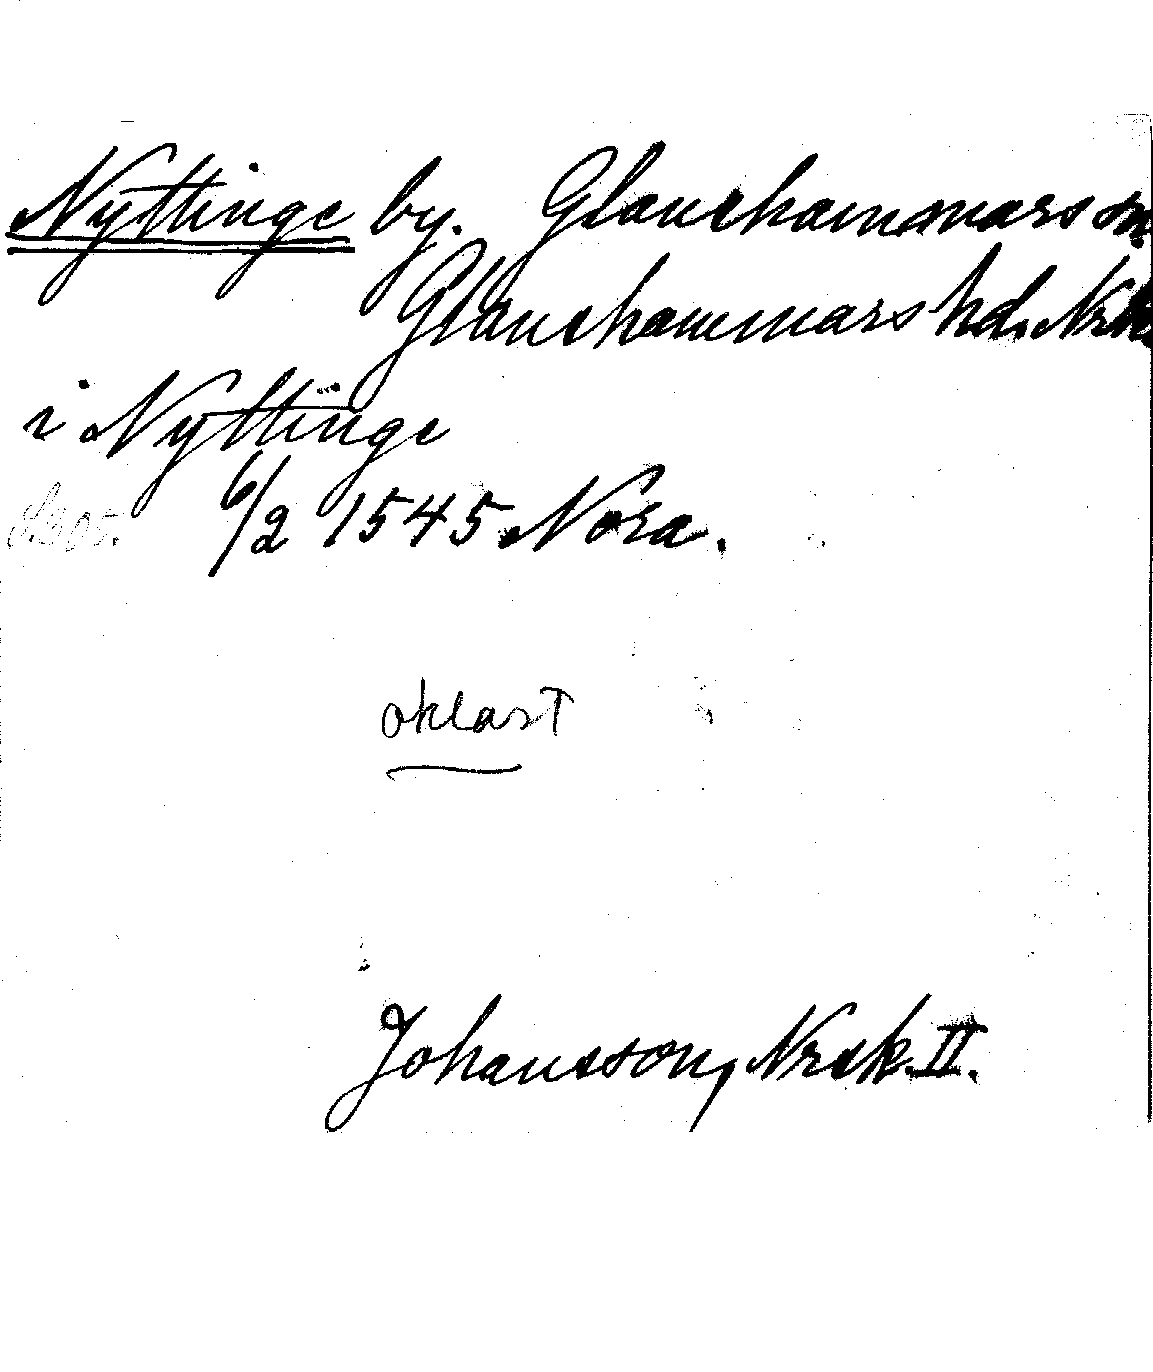 Nyttinge by. Glanshammars sn
Glanshammars hd. Nrk.
i Nyttinge
S. 305. 6/2 1545 Nora.
oklart
Johansson, Nrsk. II.